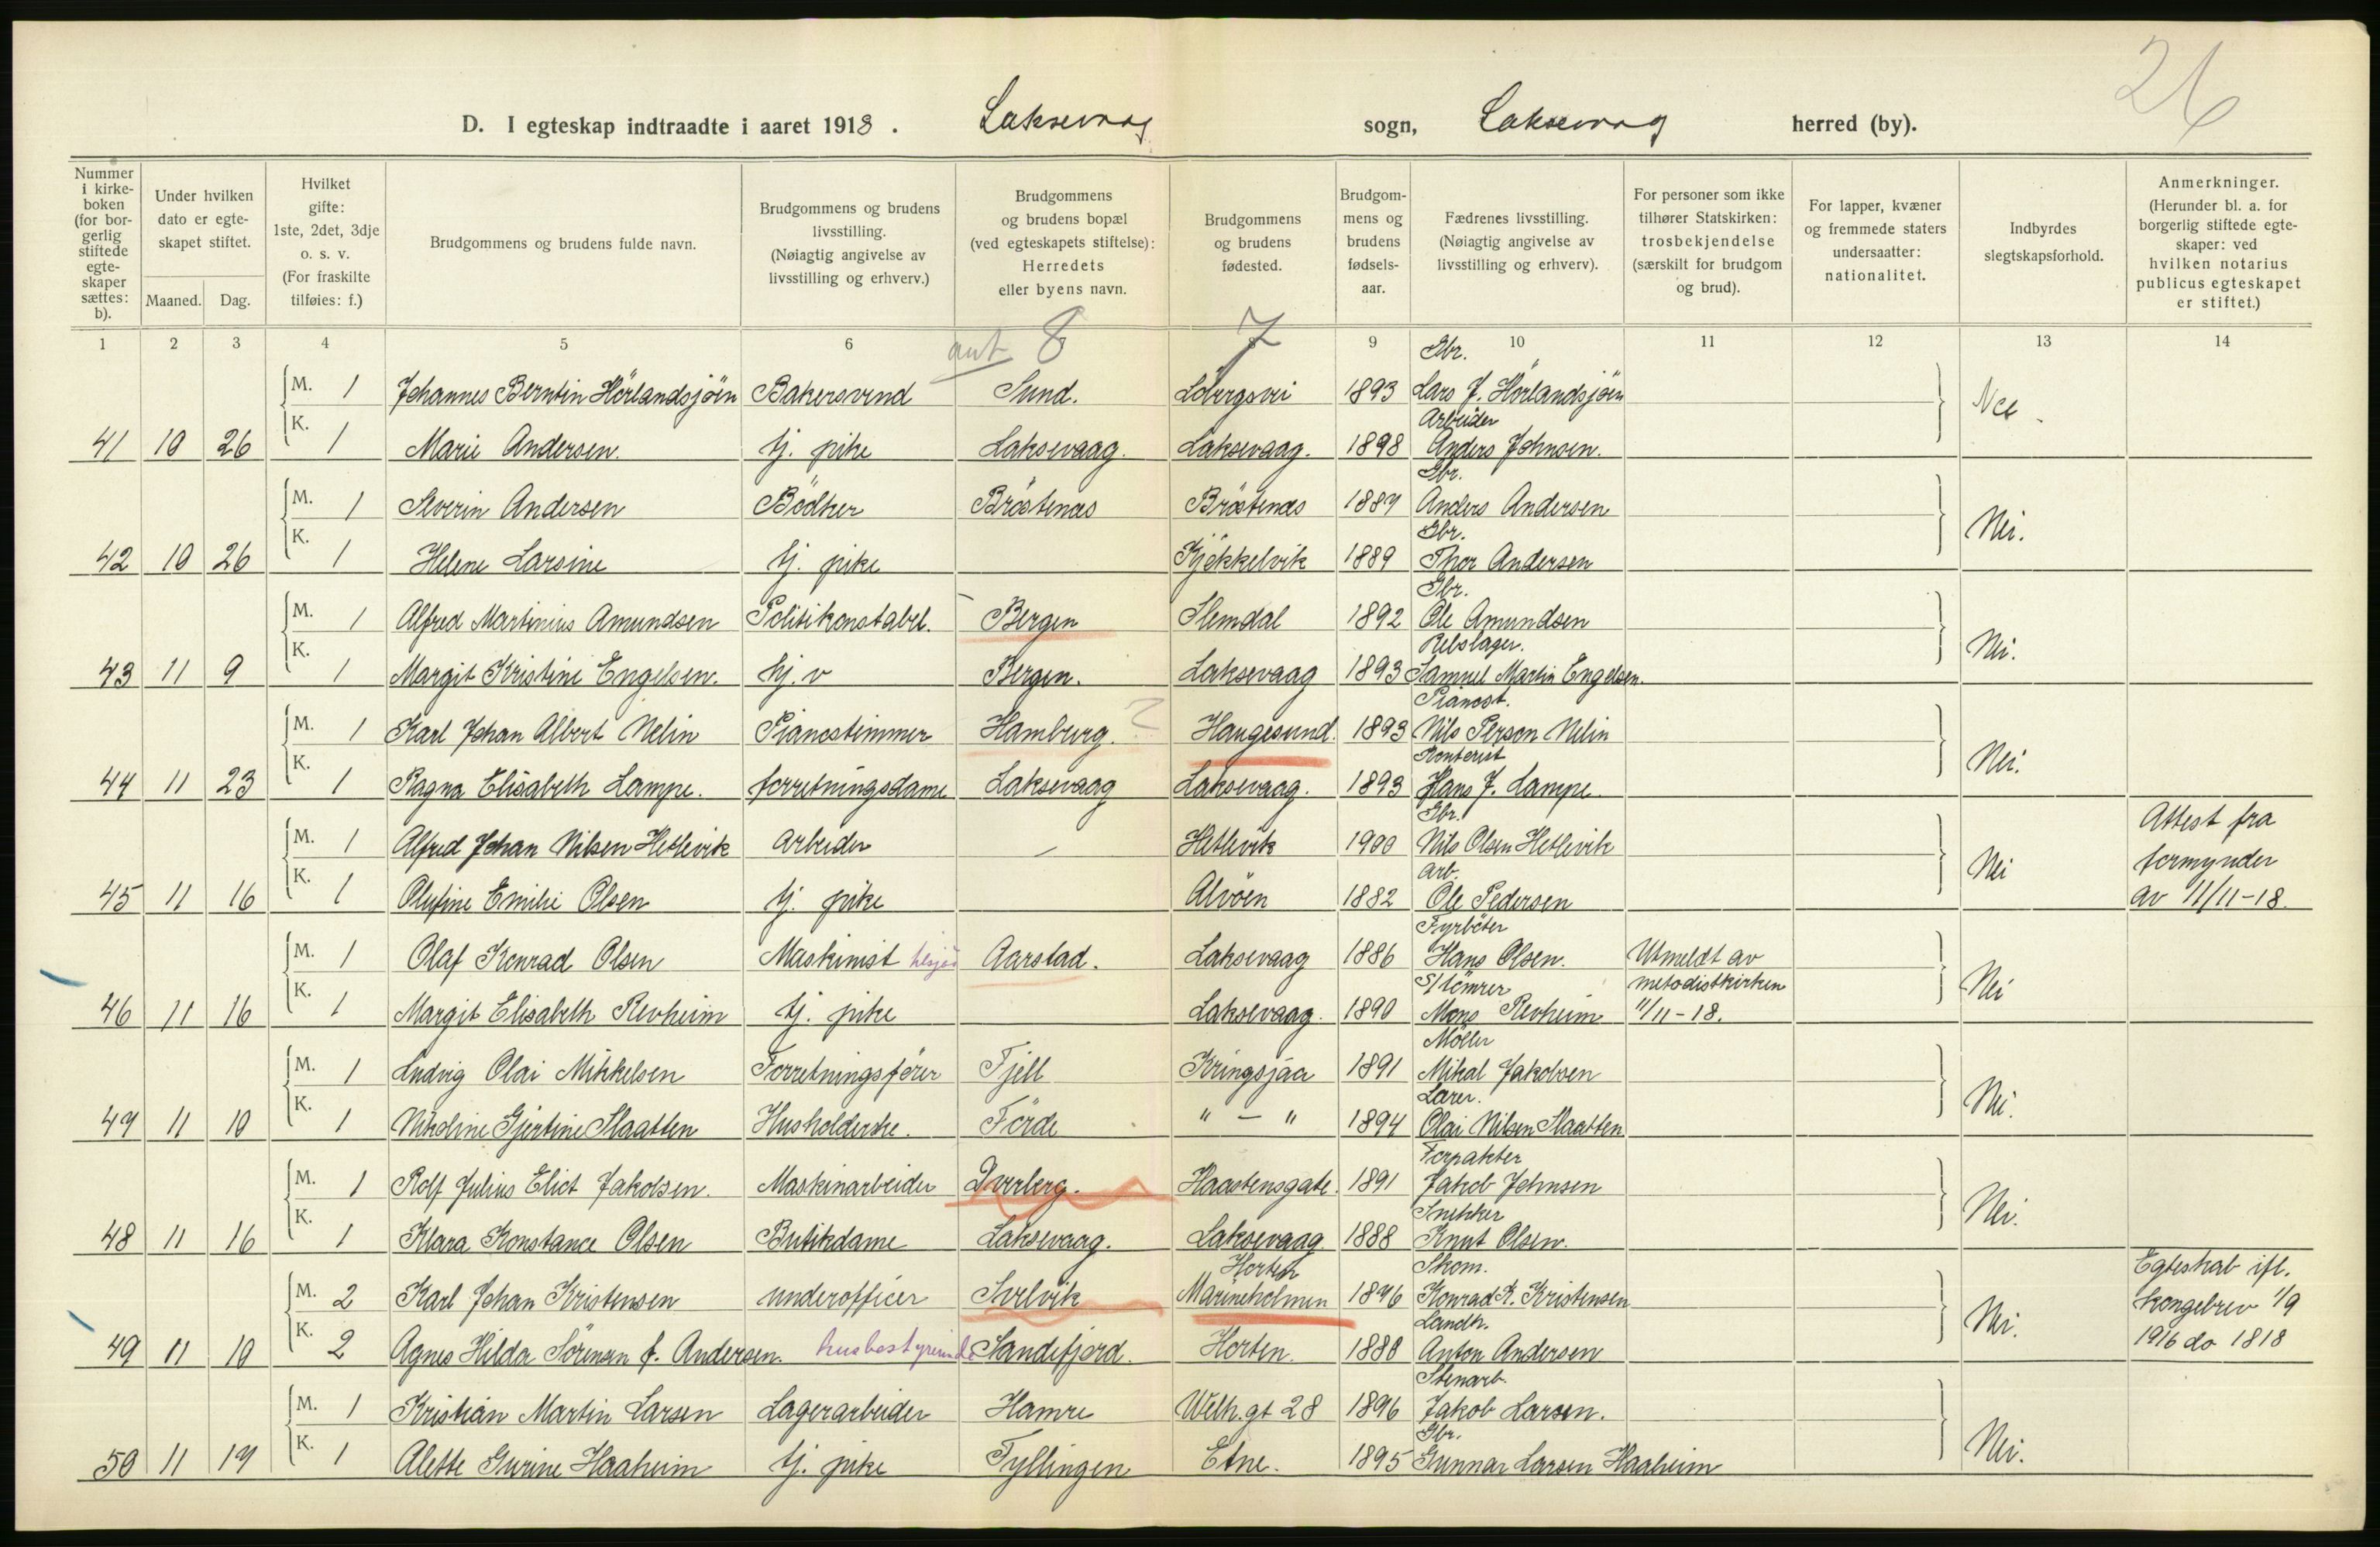 26
D. I egteskap indtraadte i aaret 1918. Laksevaag sogn, Laksevaag herred (by).
Nummer i kirkeboken (for borgerlig stiftede egteskaper sættes: b).
Under hvilken dato er egteskapet stiftet.
Maaned. Dag.
Hvilket gifte: 1ste, 2det, 3dje o. s. v. (For fraskilte tilføies: f.)
Brudgommens og brudens fulde navn.
Brudgommens og brudens livsstilling. (Nøiagtig angivelse av livsstilling og erhverv.)
Brudgommens og brudens bopæl (ved egteskapets stiftelse): Herredets eller byens navn.
Brudgommens og brudens fødested.
Brudgommens og brudens fødselsaar.
Fædrenes livsstilling. (Nøiagtig angivelse av livsstilling og erhverv).
For personer som ikke tilhører Statskirken: trosbekjendelse (særskilt for brudgom og brud).
For lapper, kvæner og fremmede staters undersaatter: nationalitet.
Indbyrdes slegtskapsforhold.
Anmerkninger. (Herunder bl. a. for borgerlig stiftede egteskaper: ved hvilken notarius publicus egteskapet er stiftet.)
1 2 3 4 5 6 ant 8 7 9 10 11 12 13 14
Gbr.
M. 1 Johannes Berntin Hörlandsjöen Bakersvend Sund. 1893 Lars J. Hörlandsjöen
Arbeider
41 10 26 K. 1 Marie Andersen. tj. pike Laksevaag. Laksevaag. 1898 Anders Johnsen. Nei.
Gbr.
M. 1 Severin Andersen Bödker Bröstenes Bröstenes 1887 Anders Andersen
Gbr.
42 10 26 K. 1 Helene Larsine tj. pike Kjökkelvik 1889 Thor Andersen Nei.
Gbr.
M. 1 Alfred Martinius Amundsen Politikonstabel. Bergen Slemdal 1892 Ole Amundsen
Rebslager.
43 11 9 K. 1 Margit Kristine Engelsen. hj. v Bergen. Laksevaag 1893 Samuel Martin Engelsen. Nei.
Pianost.
M. 1 Karl Johan Albert Melin Pianostimmer Hamburg. ? Haugesund. 1893 Nils Person Melin
Kontorist
44 11 23 K. 1 Ragna Elisabeth Lampe. forretningsdame Laksevaag Laksevaag. 1893 Hans J. Lampe. Nei.
Gbr.
M. 1 Alfred Johan Nilsen Hetlevik arbeider — Hetlevik 1900 Nils Olsen Hetlevik Attest fra
Arb. formynder
45 11 16 K. 1 Olufine Emilie Olsen tj. pike Alvöen 1882 Ole Pedersen Nei av 11/11-18.
Fyrböter
M. 1 Olaf Konrad Olsen Maskinist Aarstad. Laksevaag 1886 Hans Olsen. Utmeldt av
S/tömrer metodistkirken
46 11 16 K. 1 Margit Elisabeth Revheim tj. pike Laksevaag. 1890 Mons Revheim 11/11-18. Nei
Möller
M. 1 Ludvig Olai Mikkelsen Forretningsförer Fjell Kringsjaa 1891 Mikal Jakobsen
Lærer.
47 11 10 K. 1 Nikoline Gjertine Slaatten Husholderske. Förde " — " 1894 Olai Nilsen Slaatten Nei.
Forpakter
M. 1 Rolf Julius Eliot Jakobsen. Maskinarbeider Dverberg. Haastensgate. 1891 Jakob Johnsen
Snekker
48 11 16 K. 1 Klara Konstance Olsen Butikdame Laksevaag. Laksevaag. 1888 Knut Olsen. Nei.
Horten Skom. Egteskab ifl.
M. 2 Karl Johan Kristensen underofficer Svelvik Marineholmen 1876 Konrad K. Kristensen kongebrev 1/9
Landh.
49 11 10 K. 2 Agnes Hilda Sörensen f. Andersen. husbestyrerinde Sandefjord. Horten. 1880 Anton Andersen Nei. 1916 do 1818
Stenarb.
M. 1 Kristian Martin Larsen Lagerarbeider Hamre Welh.gt 28 1896 Jakob Larsen.
Gbr.
50 11 17 K. 1 Alette Gurine Haaheim tj. pike Fyllingen Etne. 1895 Gunnar Larsen Haaheim Nei.